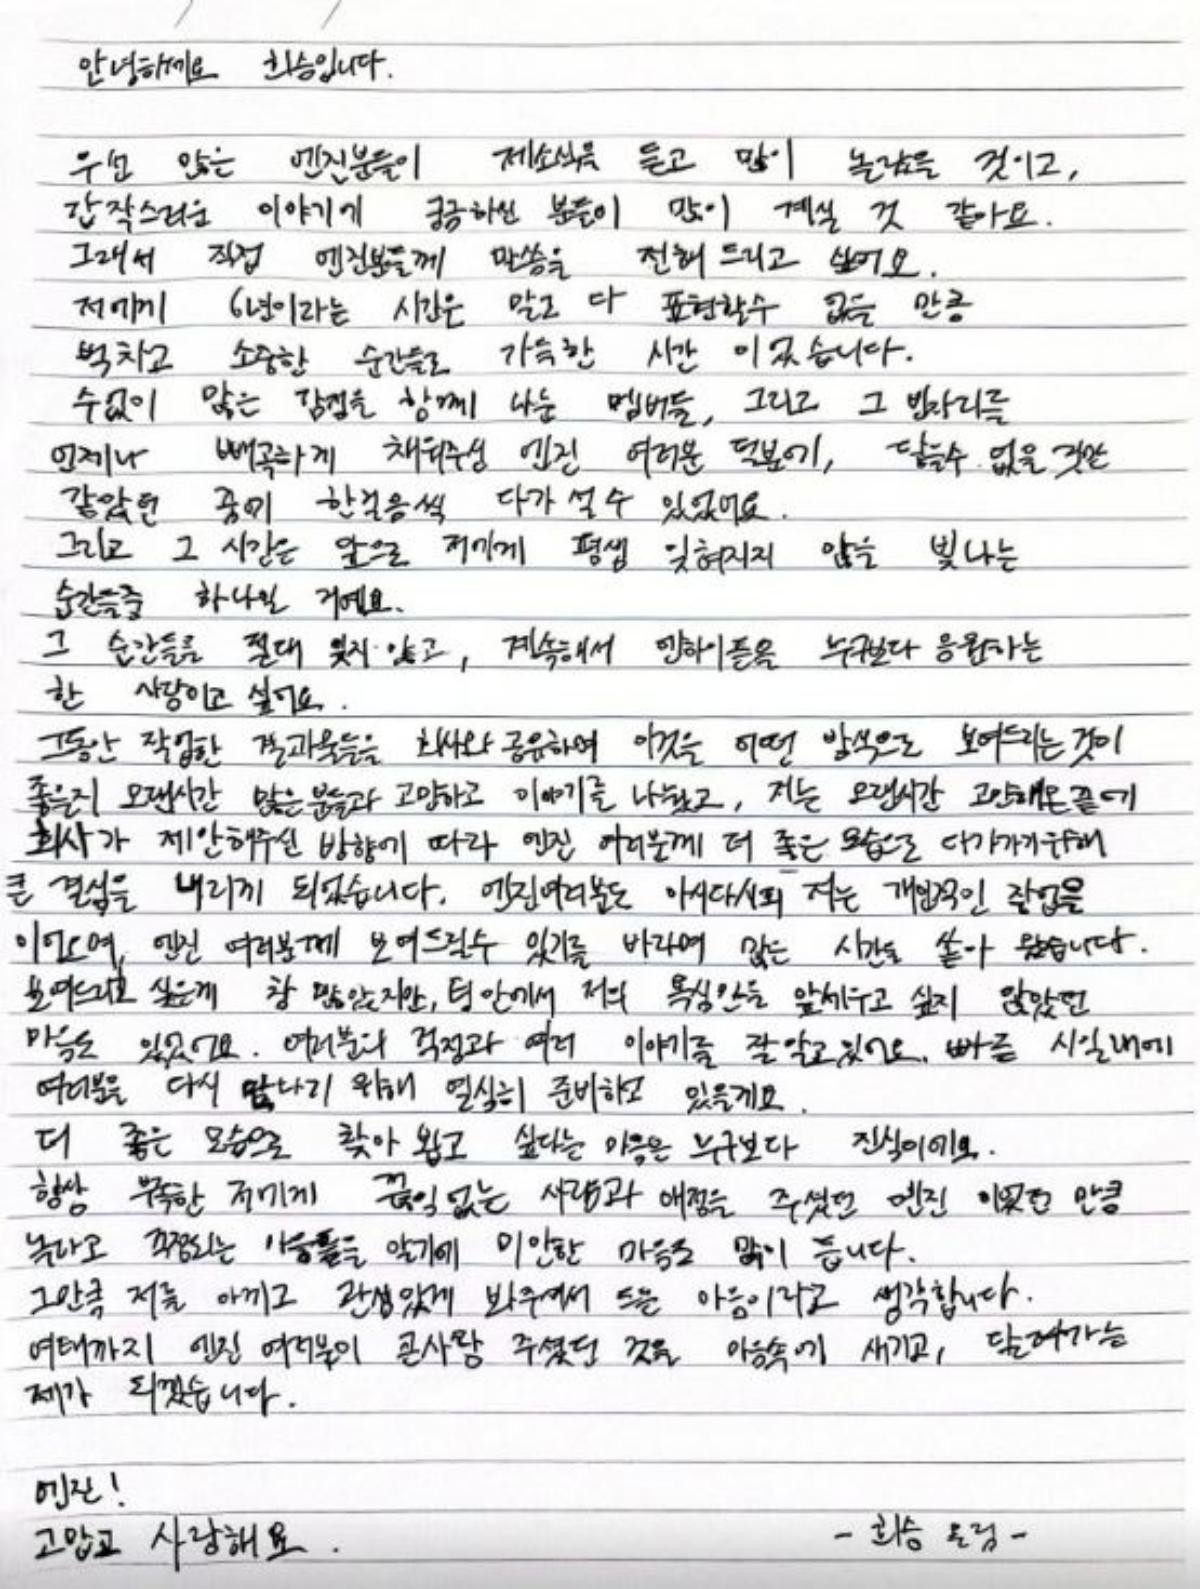 안녕하세요 희승입니다.
우선 많은 엔진분들이 제소식을 듣고 많이 놀랐을 것이고,
갑작스러운 이야기에 궁금하신 분들이 많이 계실 것 같아요.
그래서 직접 엔진분들께 말씀을 전해 드리고 싶어요.
저에게 6년이라는 시간은 말로 다 표현할수 없을 만큼
벅차고 소중한 순간들로 가득한 시간 이었습니다.
수없이 많은 감정을 함께 나눈 멤버들, 그리고 그 빈자리를
언제나 빼곡하게 채워주신 엔진 여러분 덕분에, 닿을수 없을 것만
같았던 꿈에 한걸음씩 다가 설 수 있었어요.
그리고 그 시간은 앞으로 저에게 평생 잊혀지지 않을 빛나는
순간들중 하나일 거예요.
그 순간들을 절대 잊지 않고, 계속해서 엔하이픈을 누구보다 응원하는
한 사람이고 싶어요.
그동안 작업한 결과물들을 회사와 공유하며 이것을 어떤 방식으로 보여드리는 것이
좋을지 오랜시간 많은 분들과 고민하고 이야기를 나눴고, 저는 오랜시간 고민해온 끝에
회사가 제안해주신 방향에 따라 엔진 여러분께 더 좋은 모습으로 다가가기 위해
큰 결심을 내리게 되었습니다. 엔진여러분도 아시다시피 저는 개인적인 작업을
이어오며, 엔진 여러분께 보여드릴수 있기를 바라며 많은 시간을 쏟아 왔습니다.
보여드리고 싶은게 참 많았지만, 팀 안에서 저의 욕심만을 앞세우고 싶지 않았던
마음도 있었어요. 여러분의 걱정과 여러 이야기를 잘 알고 있어요. 빠른 시일내에
여러분을 다시 만나기 위해 열심히 준비하고 있을게요.
더 좋은 모습으로 찾아 뵙고 싶다는 마음은 누구보다 진심이에요.
항상 부족한 저에게 끊임없는 사랑과 애정을 주셨던 엔진 이었던 만큼
놀라고 걱정되는 마음들을 알기에 미안한 마음도 많이 듭니다.
그만큼 저를 아끼고 관심있게 봐주셔서 드는 마음이라고 생각합니다.
여태까지 엔진 여러분이 큰사랑 주셨던 것을 마음속에 새기고, 달려가는
제가 되겠습니다.
엔진!
고맙고 사랑해요.
- 희승 올림 -